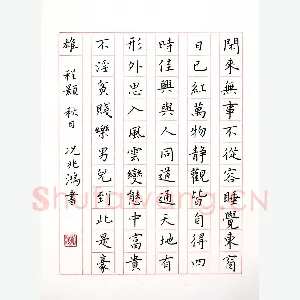 閒來無事不從容睡覺東窗
日已紅萬物靜觀皆自得四
時佳興與人同道通天地有
形外思入風雲變態中富貴
不淫貧賤樂男兒到此是豪
雄 程顥 秋日 况兆鴻書
Shufawang.CN